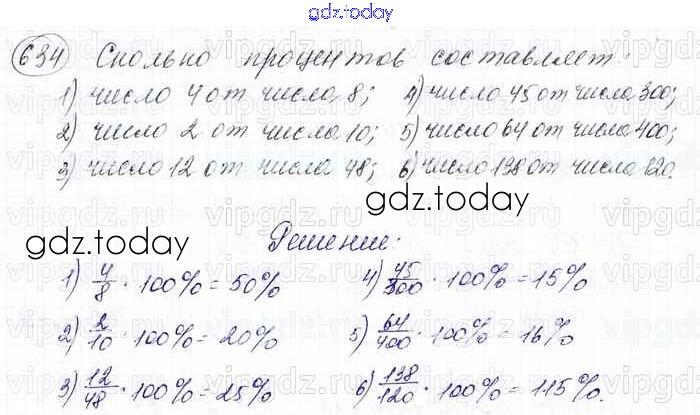 gdz.today
634) Сколько процентов составляет:
1) число 4 от числа 8; 4) число 45 от числа 300;
2) число 2 от числа 10; 5) число 64 от числа 400;
3) число 12 от числа 48; 6) число 138 от числа 120.
gdz.today
gdz.today
Решение:
1) 4/8 · 100% = 50% 4) 45/300 · 100% = 15%
2) 2/10 · 100% = 20% 5) 64/400 · 100% = 16%
3) 12/48 · 100% = 25% 6) 138/120 · 100% = 115%.